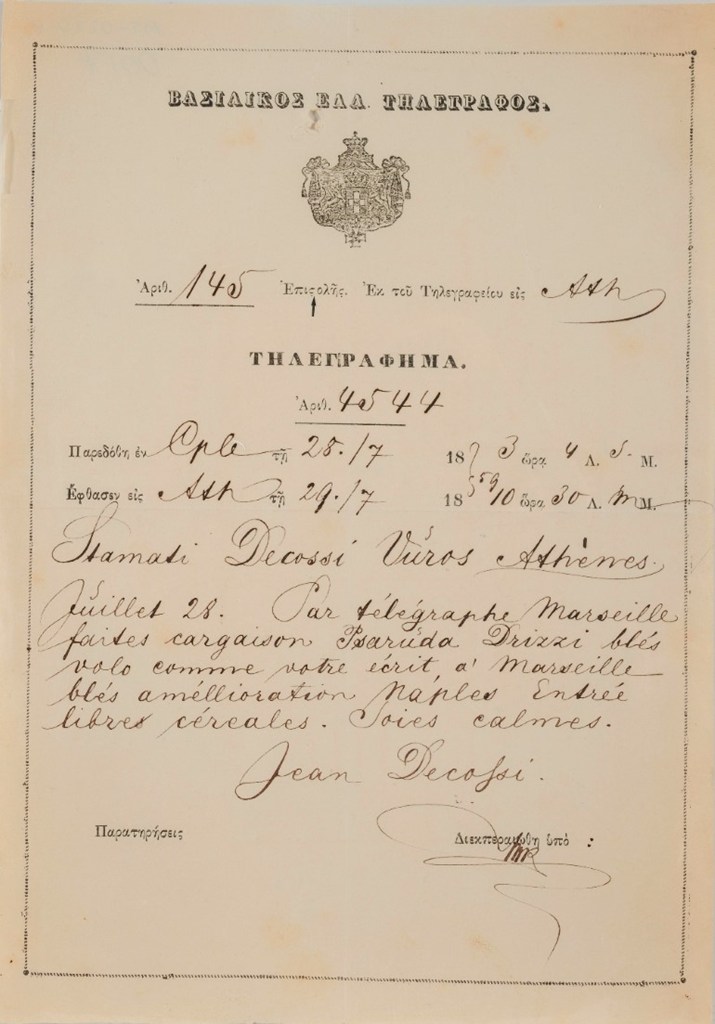 ΒΑΣΙΛΙΚΟΣ ΕΛΛ. ΤΗΛΕΓΡΑΦΟΣ.
Ἀριθ. 145 Ἐπιςολῆς. Ἐκ τοῦ Τηλεγραφείου εἰς Ath
ΤΗΛΕΓΡΑΦΗΜΑ.
Ἀριθ. 4544
Παρεδόθη ἐν Cple τῇ 28./7 18 3 ὥρᾳ 4 Λ. S. Μ.
Ἔφθασεν εἰς Ath τῇ 29./7 1859 10 ὥρᾳ 30 Λ. m Μ.
Stamati Decossi Vüros Athènes.
Jüillet 28. Par télégraphe Marseille
faites cargaison Psarüda Drizzi blés
volo comme votre écrit, a' Marseille
blés améllioration Naples Entrée
libres céreales. Soies calmes.
Jean Decossi.
Παρατηρήσεις Διεκπεραιώθη ὑπὸ :